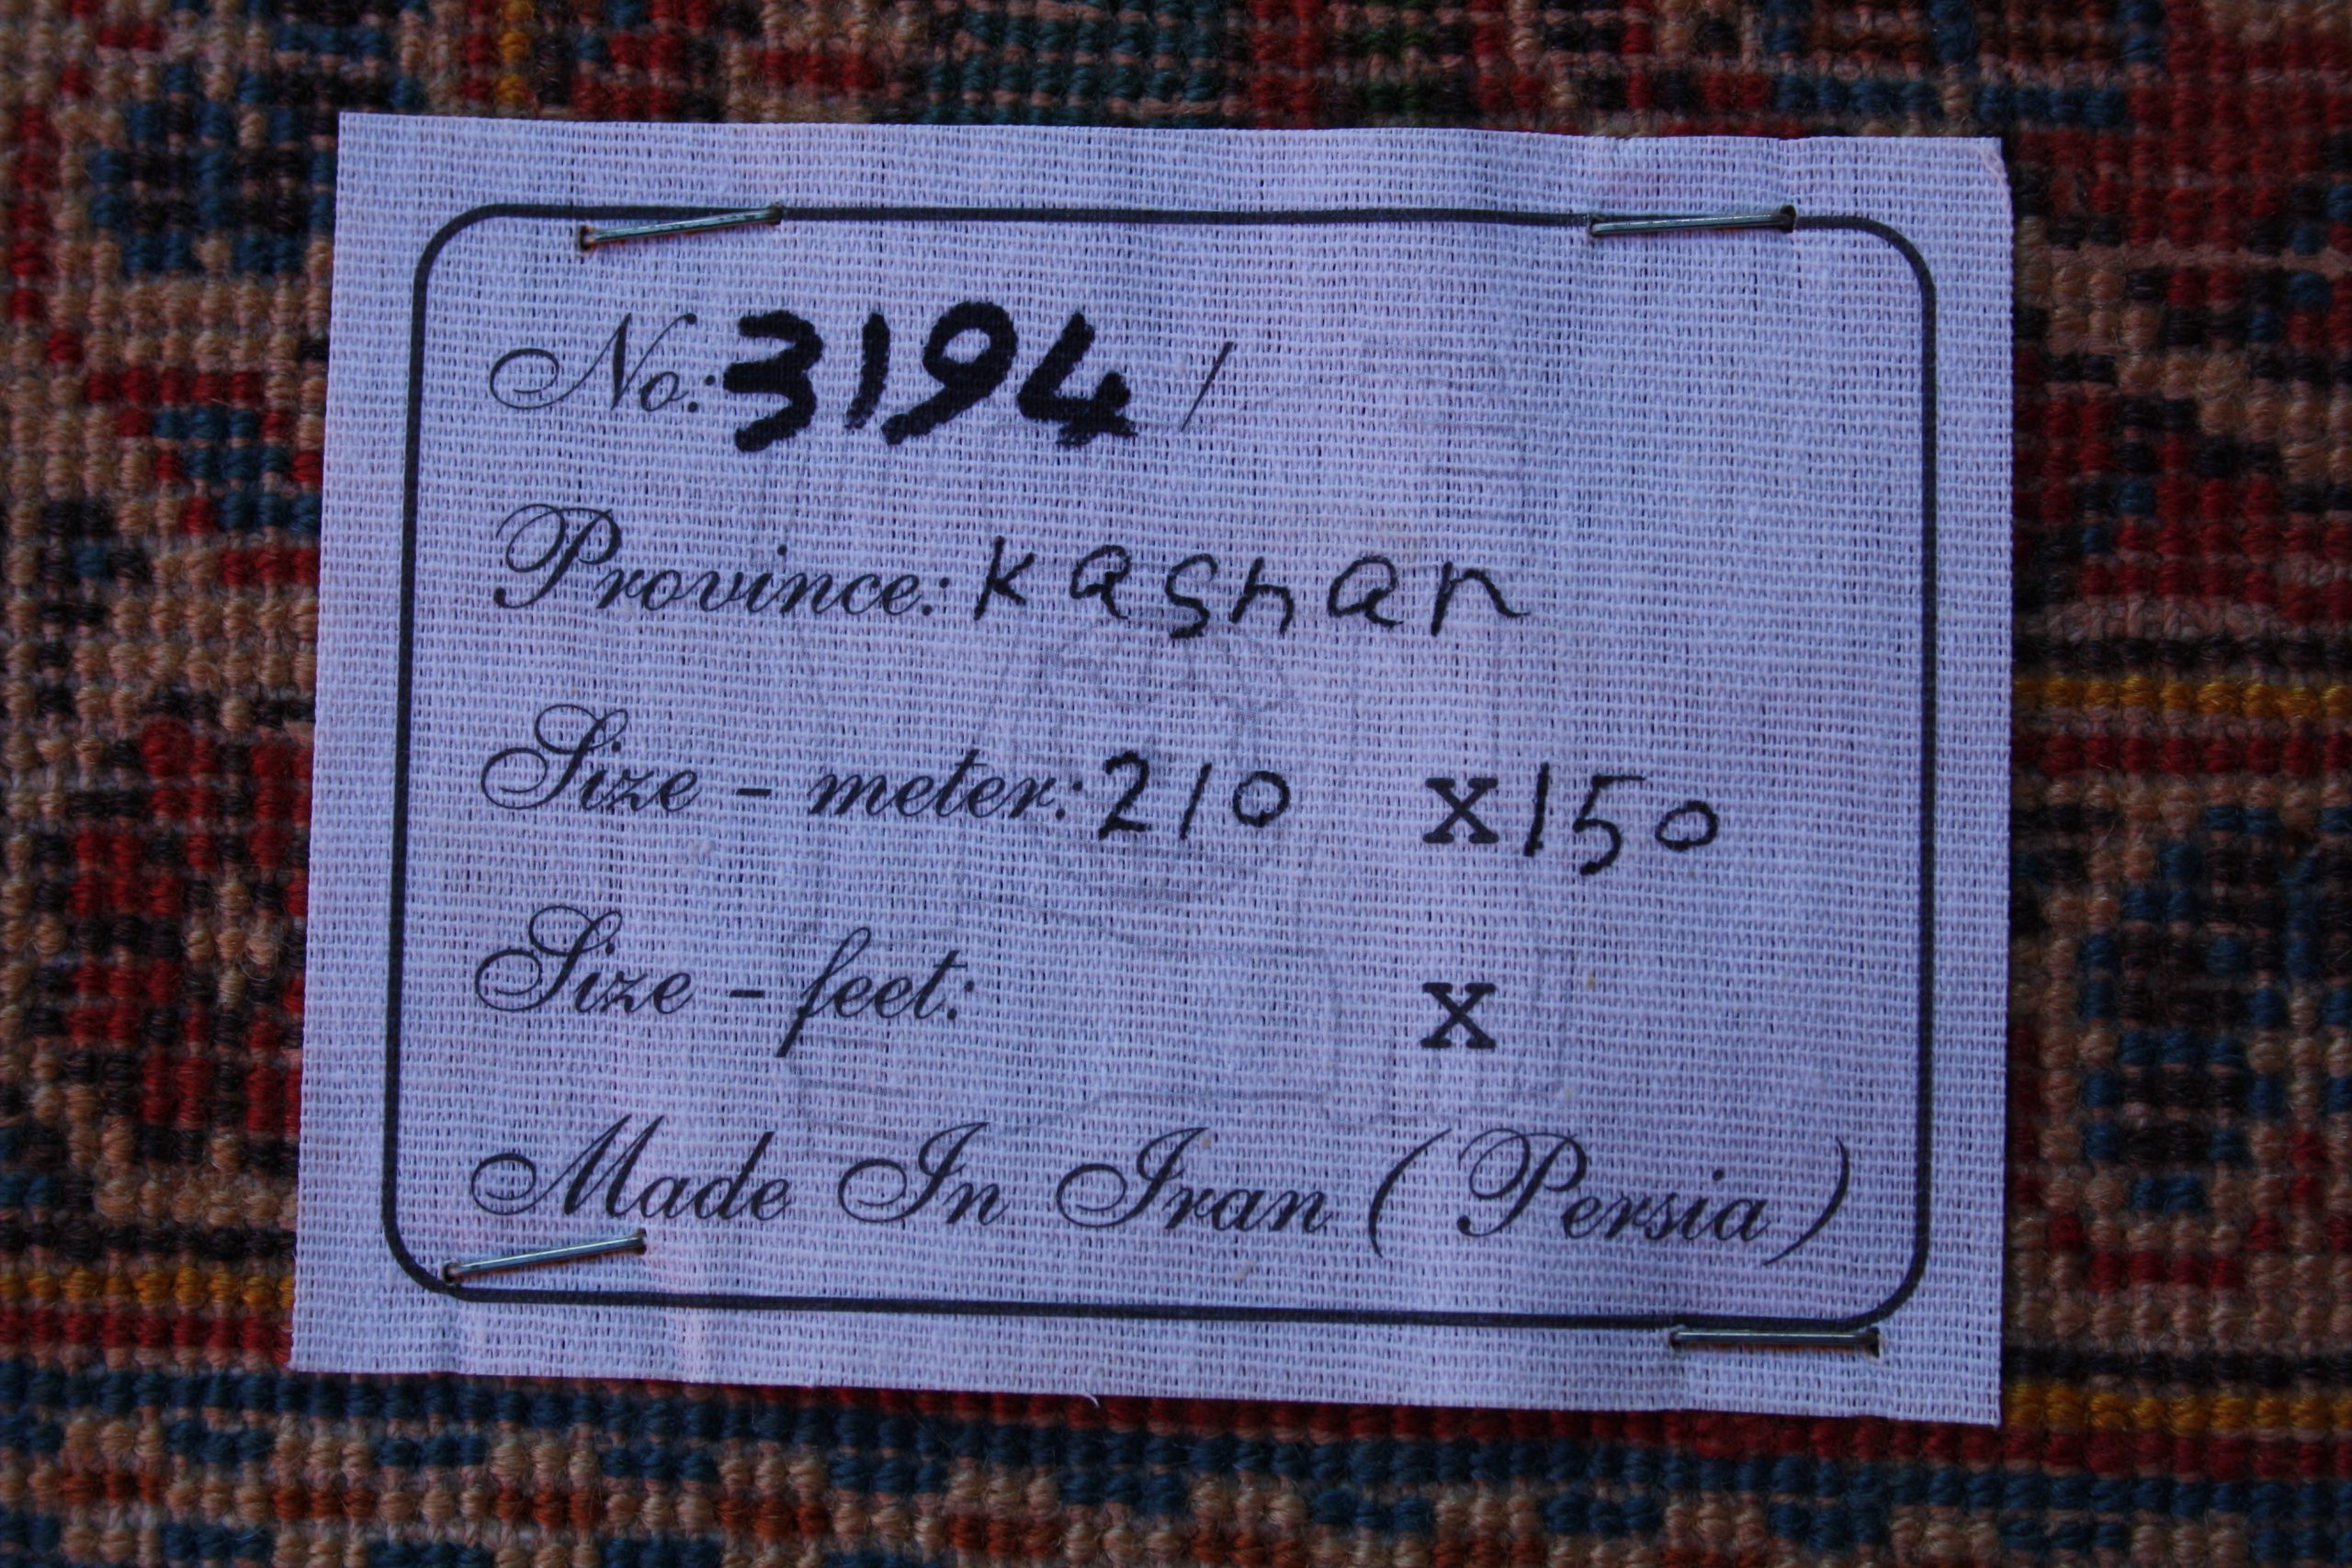 No: 3194 /
Province: Kashan
Size - meter: 210 X 150
Size - feet: X
Made In Iran (Persia)